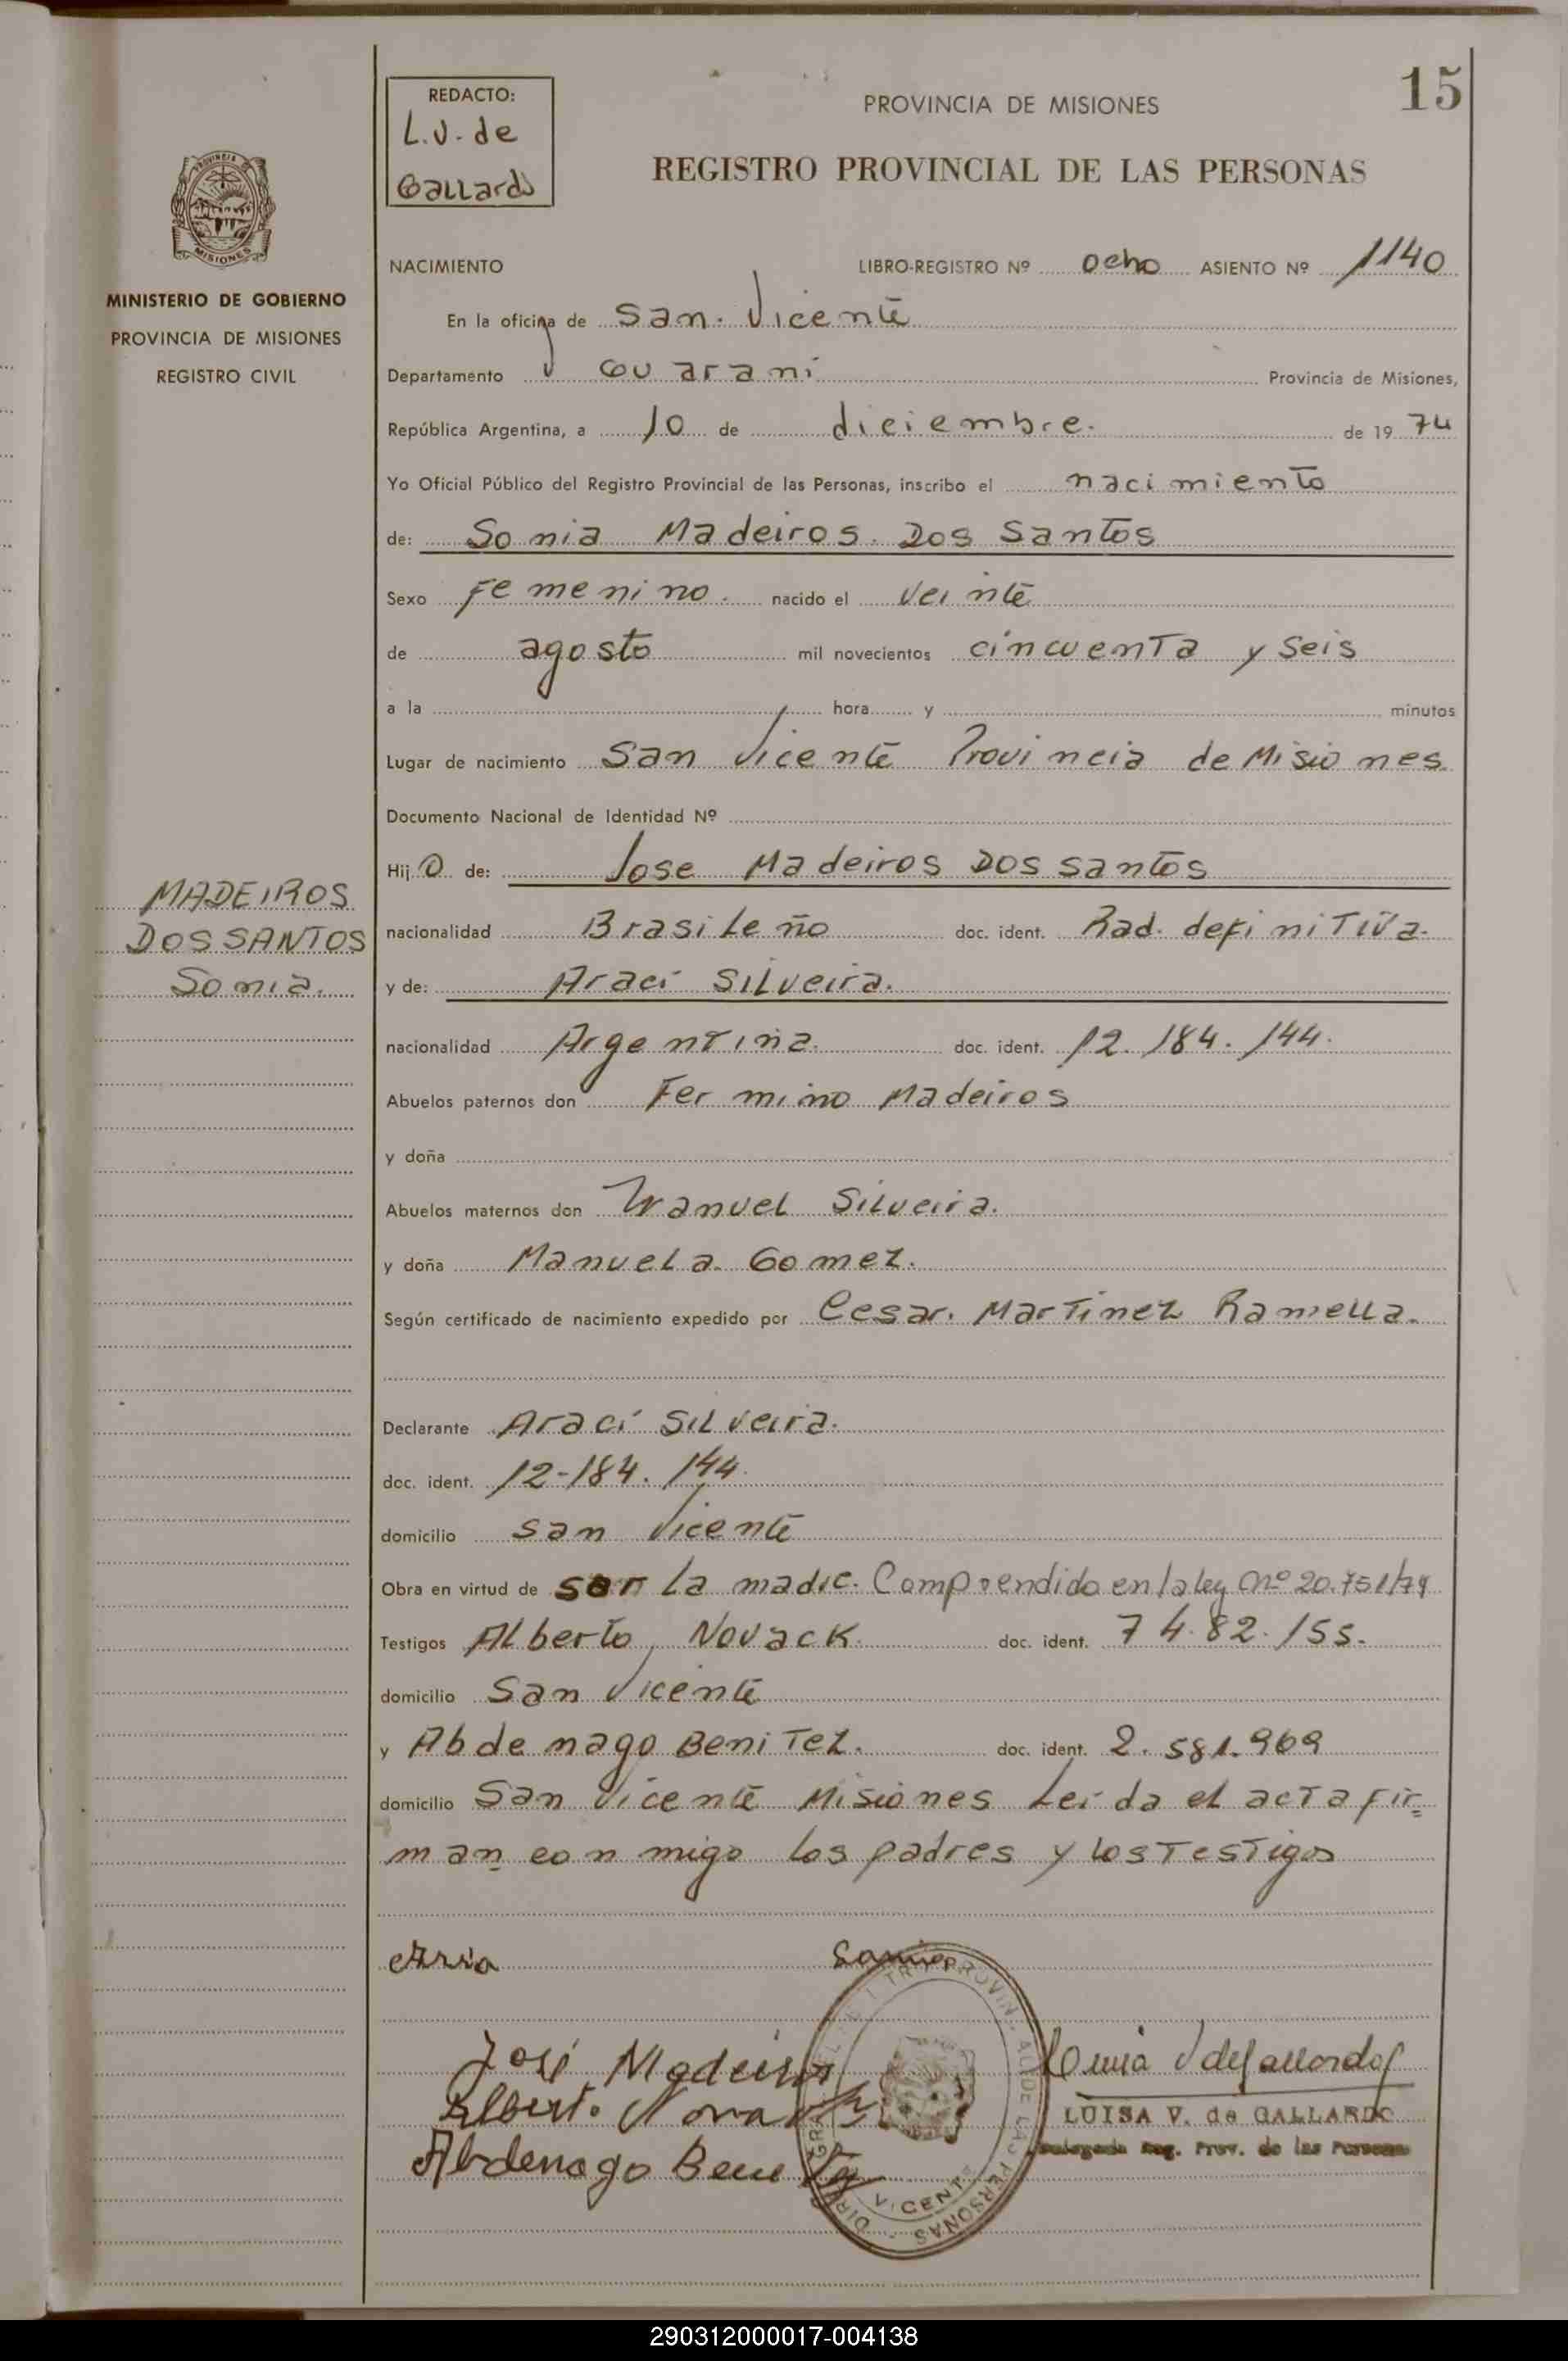 15
REDACTO:
L.V. de
Gallardo
PROVINCIA DE MISIONES
REGISTRO PROVINCIAL DE LAS PERSONAS
MISIONES
MINISTERIO DE GOBIERNO
PROVINCIA DE MISIONES
REGISTRO CIVIL
NACIMIENTO LIBRO-REGISTRO Nº ocho ASIENTO Nº 1140
En la oficina de San Vicente
Departamento Guaraní Provincia de Misiones,
República Argentina, a 10 de diciembre. de 19 74
Yo Oficial Público del Registro Provincial de las Personas, inscribo el nacimiento
de: Sonia Madeiros Dos Santos
Sexo Femenino. nacido el veinte
de agosto mil novecientos cincuenta y seis
a la hora y minutos
Lugar de nacimiento San Vicente Provincia de Misiones
Documento Nacional de Identidad Nº
Hij O de: Jose Madeiros Dos Santos
MADEIROS
DOS SANTOS
Sonia.
nacionalidad Brasileño doc. ident. Rad. definitiva.
y de: Araci Silveira.
nacionalidad Argentina. doc. ident. 12.184.144.
Abuelos paternos don Fermino Madeiros
y doña
Abuelos maternos don Manuel Silveira.
y doña Manuela Gomez.
Según certificado de nacimiento expedido por Cesar. Martinez Ramella.
Declarante Araci Silveira.
doc. ident. 12-184.144.
domicilio San Vicente
Obra en virtud de ser la madre. Comprendido en la ley nº 20.751/74
Testigos Alberto Novack doc. ident. 7482.155.
domicilio San Vicente
y Abdenago Benitez. doc. ident. 2.581.969
domicilio San Vicente Misiones Leída el acta fir=
man conmigo los padres y los Testigos
José Madeiros
Alberto Novack
Abdenago Benitez
LUISA V. de GALLARDO
Delegada Reg. Prov. de las Personas
290312000017-004138